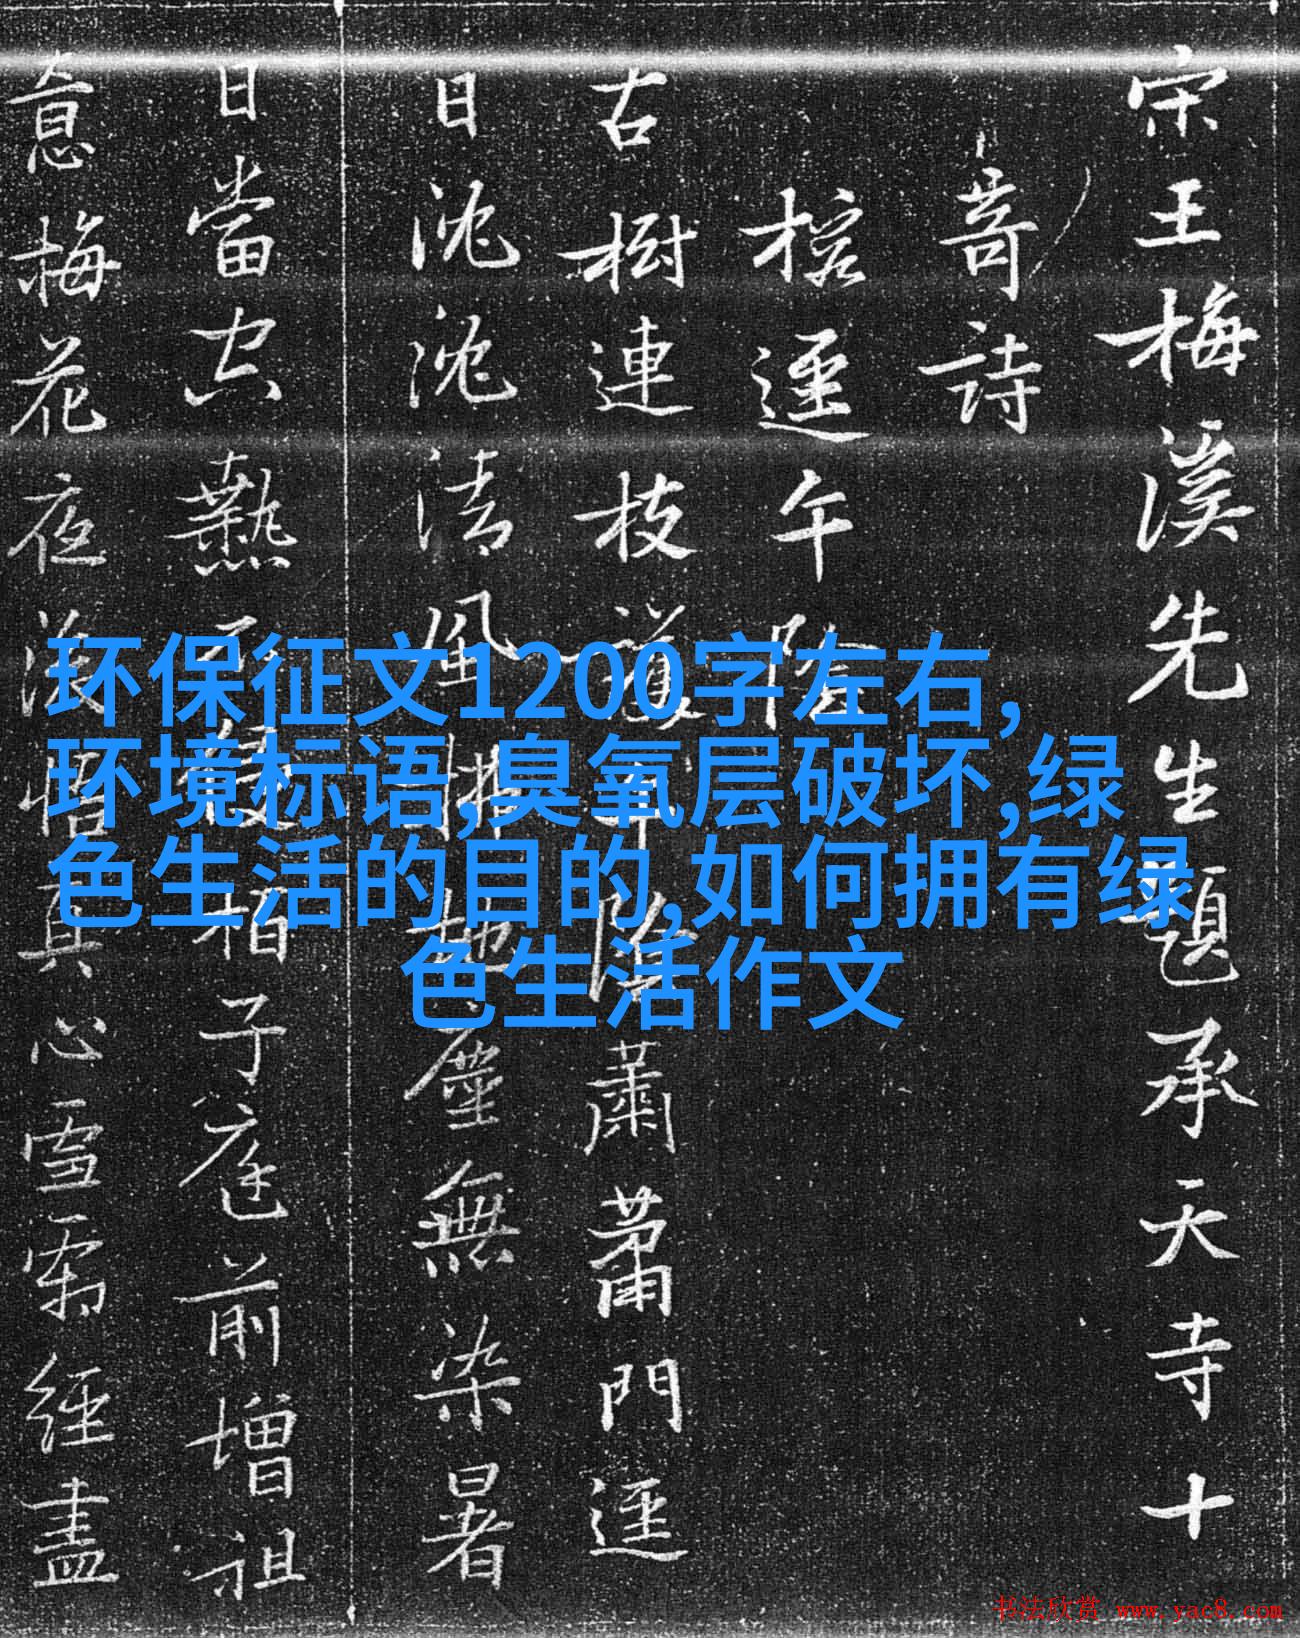 宋王梅溪先生題承天寺十
奇詩
榕逕午陰
古樹連枝午陰蕭蕭門逕
日沈沈清風拂地塵無染暑
日當空熱不侵柏子庭前增祖
意梅花夜悟真心雪霜經盡
环保征文1200字左右,
环境标语,臭氧层破坏,绿
色生活的目的,如何拥有绿
色生活作文
书法欣赏 www.yac8.com